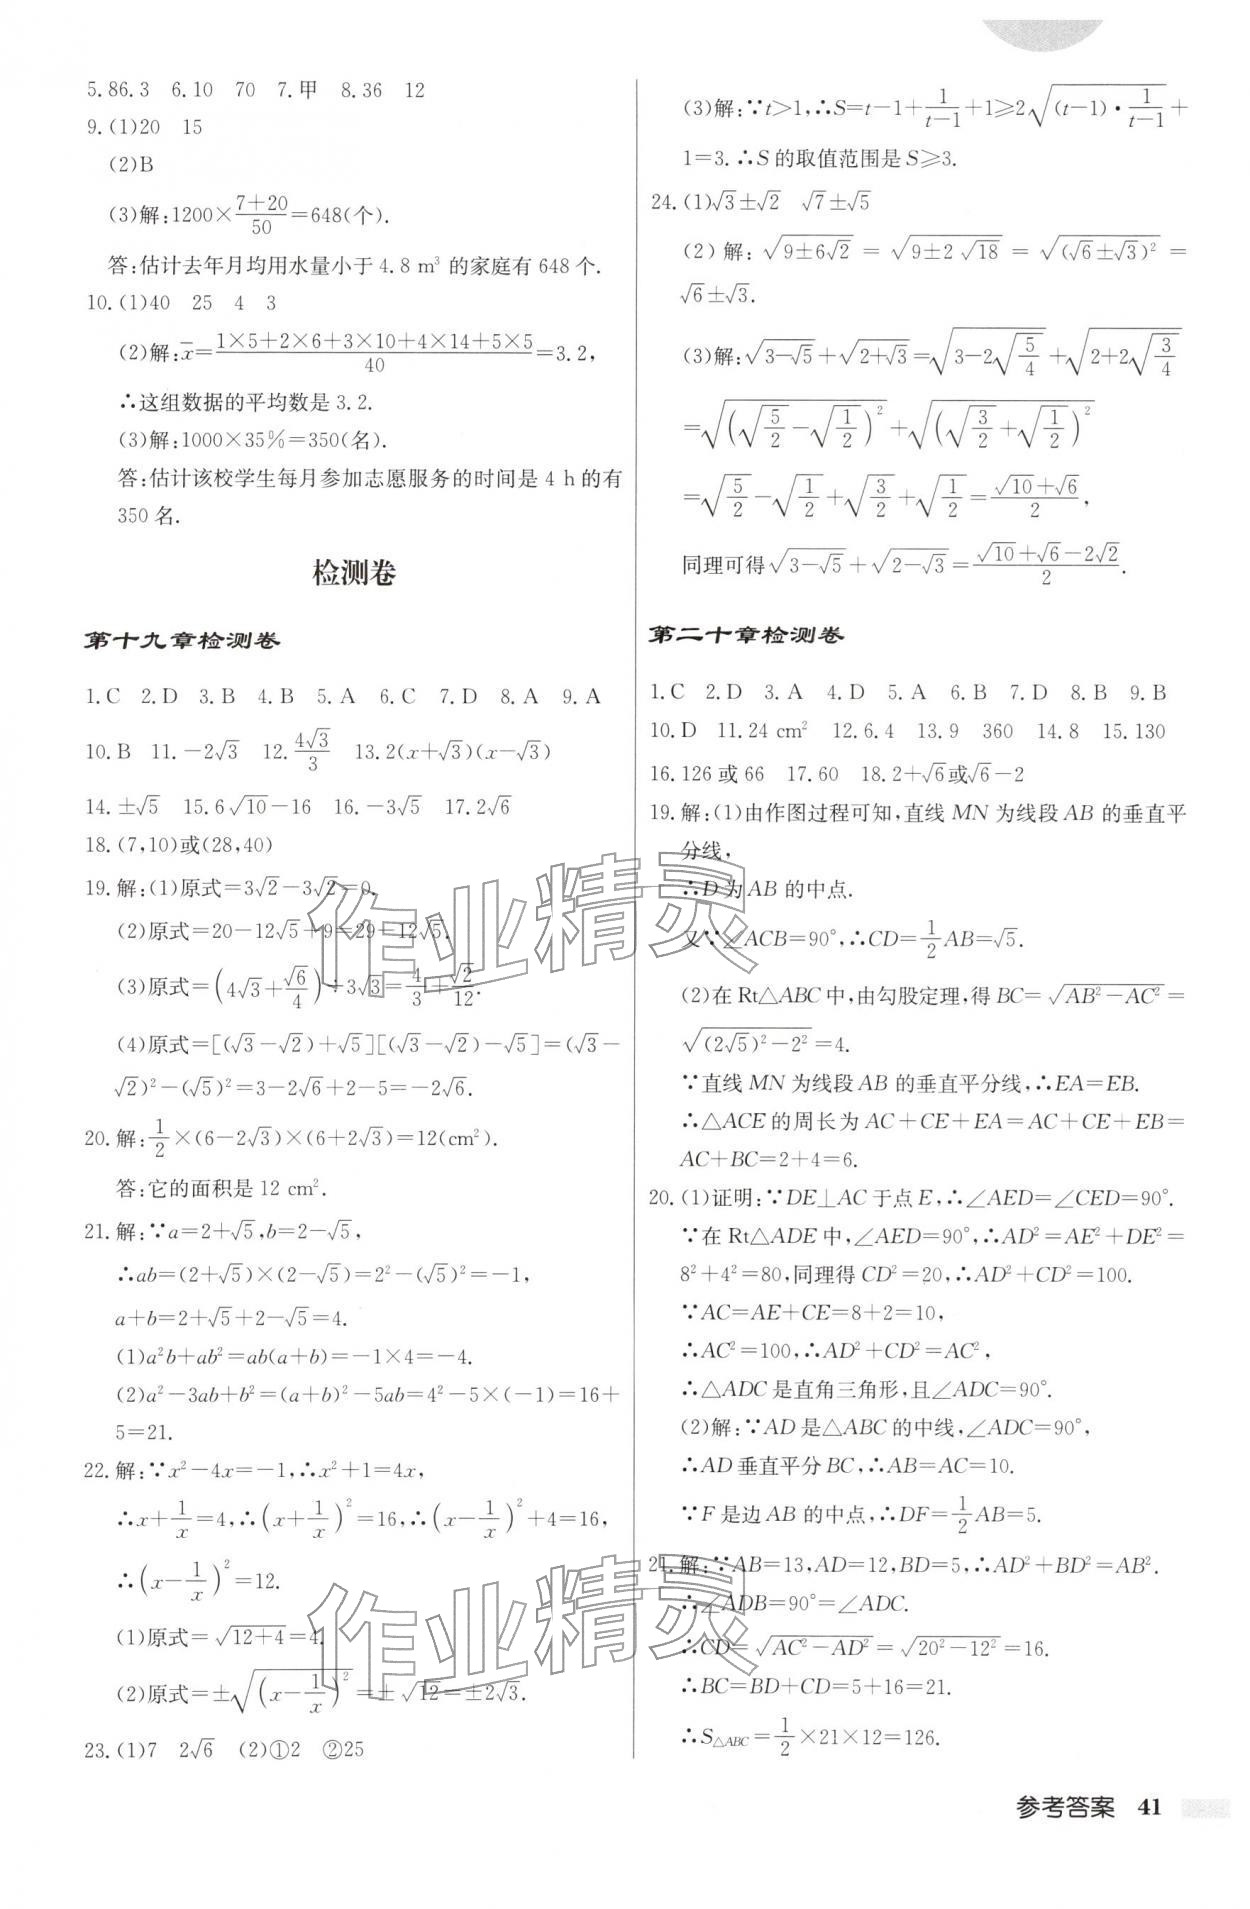 5.86.3 6.10 70 7.甲 8.36 12
9.(1)20 15
(2)B
(3)解:1200×\frac{7+20}{50}=648(个).
答:估计去年月均用水量小于 4.8 m³ 的家庭有 648 个.
10.(1)40 25 4 3
(2)解:\overline{x}=\frac{1×5+2×6+3×10+4×14+5×5}{40}=3.2,
∴这组数据的平均数是 3.2.
(3)解:1000×35%=350(名).
答:估计该校学生每月参加志愿服务的时间是 4 h 的有
350 名.
检测卷
第十九章检测卷
1.C 2.D 3.B 4.B 5.A 6.C 7.D 8.A 9.A
10.B 11.-2√3 12.\frac{4√3}{3} 13.2(x+√3)(x-√3)
14.±√5 15.6√10-16 16.-3√5 17.2√6
18.(7,10)或(28,40)
19.解:(1)原式=3√2-3√2=0.
(2)原式=20-12√5+9=29-12√5.
(3)原式=(4√3+\frac{√6}{4})÷3√3=\frac{4}{3}+\frac{√2}{12}.
(4)原式=[(√3-√2)+√5][(√3-√2)-√5]=(√3-
√2)²-(√5)²=3-2√6+2-5=-2√6.
20.解:\frac{1}{2}×(6-2√3)×(6+2√3)=12(cm²).
答:它的面积是 12 cm².
21.解:∵a=2+√5,b=2-√5,
∴ab=(2+√5)×(2-√5)=2²-(√5)²=-1,
a+b=2+√5+2-√5=4.
(1)a²b+ab²=ab(a+b)=-1×4=-4.
(2)a²-3ab+b²=(a+b)²-5ab=4²-5×(-1)=16+
5=21.
22.解:∵x²-4x=-1,∴x²+1=4x,
∴x+\frac{1}{x}=4,∴(x+\frac{1}{x})²=16,∴(x-\frac{1}{x})²+4=16,
∴(x-\frac{1}{x})²=12.
(1)原式=√(12+4)=4.
(2)原式=±√((x-\frac{1}{x})²)=±√12=±2√3.
23.(1)7 2√6 (2)①2 ②25
(3)解:∵t>1,∴S=t-1+\frac{1}{t-1}+1≥2√((t-1)·\frac{1}{t-1})+
1=3.∴S 的取值范围是 S≥3.
24.(1)√3±√2 √7±√5
(2)解:√(9±6√2)=√(9±2√18)=√((√6±√3)²)=
√6±√3.
(3)解:√(3-√5)+√(2+√3)=√(3-2√\frac{5}{4})+√(2+2√\frac{3}{4})
=√((√\frac{5}{2}-√\frac{1}{2})²)+√((√\frac{3}{2}+√\frac{1}{2})²)
=√\frac{5}{2}-√\frac{1}{2}+√\frac{3}{2}+√\frac{1}{2}=\frac{√10+√6}{2},
同理可得√(3-√5)+√(2-√3)=\frac{√10+√6-2√2}{2}.
第二十章检测卷
1.C 2.D 3.A 4.D 5.A 6.B 7.D 8.B 9.B
10.D 11.24 cm² 12.6.4 13.9 360 14.8 15.130
16.126 或 66 17.60 18.2+√6或√6-2
19.解:(1)由作图过程可知,直线 MN 为线段 AB 的垂直平
分线,
∴D 为 AB 的中点.
又∵∠ACB=90°,∴CD=\frac{1}{2}AB=√5.
(2)在 Rt△ABC 中,由勾股定理,得 BC=√(AB²-AC²)=
√((2√5)²-2²)=4.
∵直线 MN 为线段 AB 的垂直平分线,∴EA=EB.
∴△ACE 的周长为 AC+CE+EA=AC+CE+EB=
AC+BC=2+4=6.
20.(1)证明:∵DE⊥AC 于点 E,∴∠AED=∠CED=90°.
∵在 Rt△ADE 中,∠AED=90°,∴AD²=AE²+DE²=
8²+4²=80,同理得 CD²=20,∴AD²+CD²=100.
∵AC=AE+CE=8+2=10,
∴AC²=100,∴AD²+CD²=AC²,
∴△ADC 是直角三角形,且∠ADC=90°.
(2)解:∵AD 是△ABC 的中线,∠ADC=90°,
∴AD 垂直平分 BC,∴AB=AC=10.
∵F 是边 AB 的中点,∴DF=\frac{1}{2}AB=5.
21.解:∵AB=13,AD=12,BD=5,∴AD²+BD²=AB².
∴∠ADB=90°=∠ADC.
∴CD=√(AC²-AD²)=√(20²-12²)=16.
∴BC=BD+CD=5+16=21.
∴S△ABC=\frac{1}{2}×21×12=126.
参考答案 41
作业精灵
作业精灵